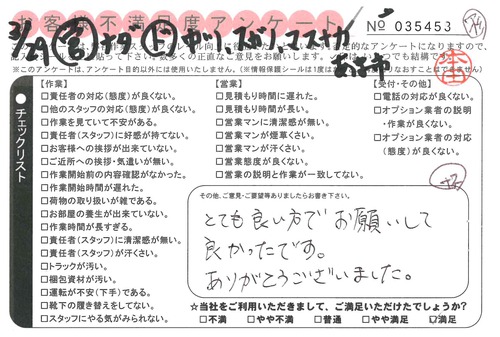 お客様不満足度アンケート
No 035453
3/29
※このアンケートは、アンケート目的以外には使用いたしません。
チェックリスト
【作業】
□責任者の対応(態度)が良くない。
□他のスタッフの対応(態度)が良くない。
□作業を見ていて不安がある。
□責任者(スタッフ)に好感が持てない。
□お客様への挨拶が出来ていない。
□ご近所への挨拶・気遣いが無い。
□作業開始前の内容確認がなかった。
□作業開始時間が遅れた。
□荷物の取り扱いが雑である。
□お部屋の養生が出来ていない。
□作業時間が長すぎる。
□責任者(スタッフ)に清潔感が無い。
□責任者(スタッフ)が汗くさい。
□トラックが汚い。
□梱包資材が汚い。
□運転が不安(下手)である。
□靴下の履き替えをしてない。
□スタッフにやる気がみられない。
【営業】
□見積もり時間に遅れた。
□見積もり時間が長い。
□営業マンに清潔感が無い。
□営業マンが煙草くさい。
□営業マンが汗くさい。
□営業態度が良くない。
□営業の説明と作業が一致してない。
【受付・その他】
□電話の対応が良くない。
□オプション業者の説明
・作業が良くない。
□オプション業者の対応
(態度)が良くない。
その他、ご意見・ご要望等ありましたらお書き下さい。
とても良い方でお願いして
良かったです。
ありがとうございました。
☆当社をご利用いただきまして、ご満足いただけたでしょうか?
□不満 □やや不満 □普通 □やや満足 ☑満足